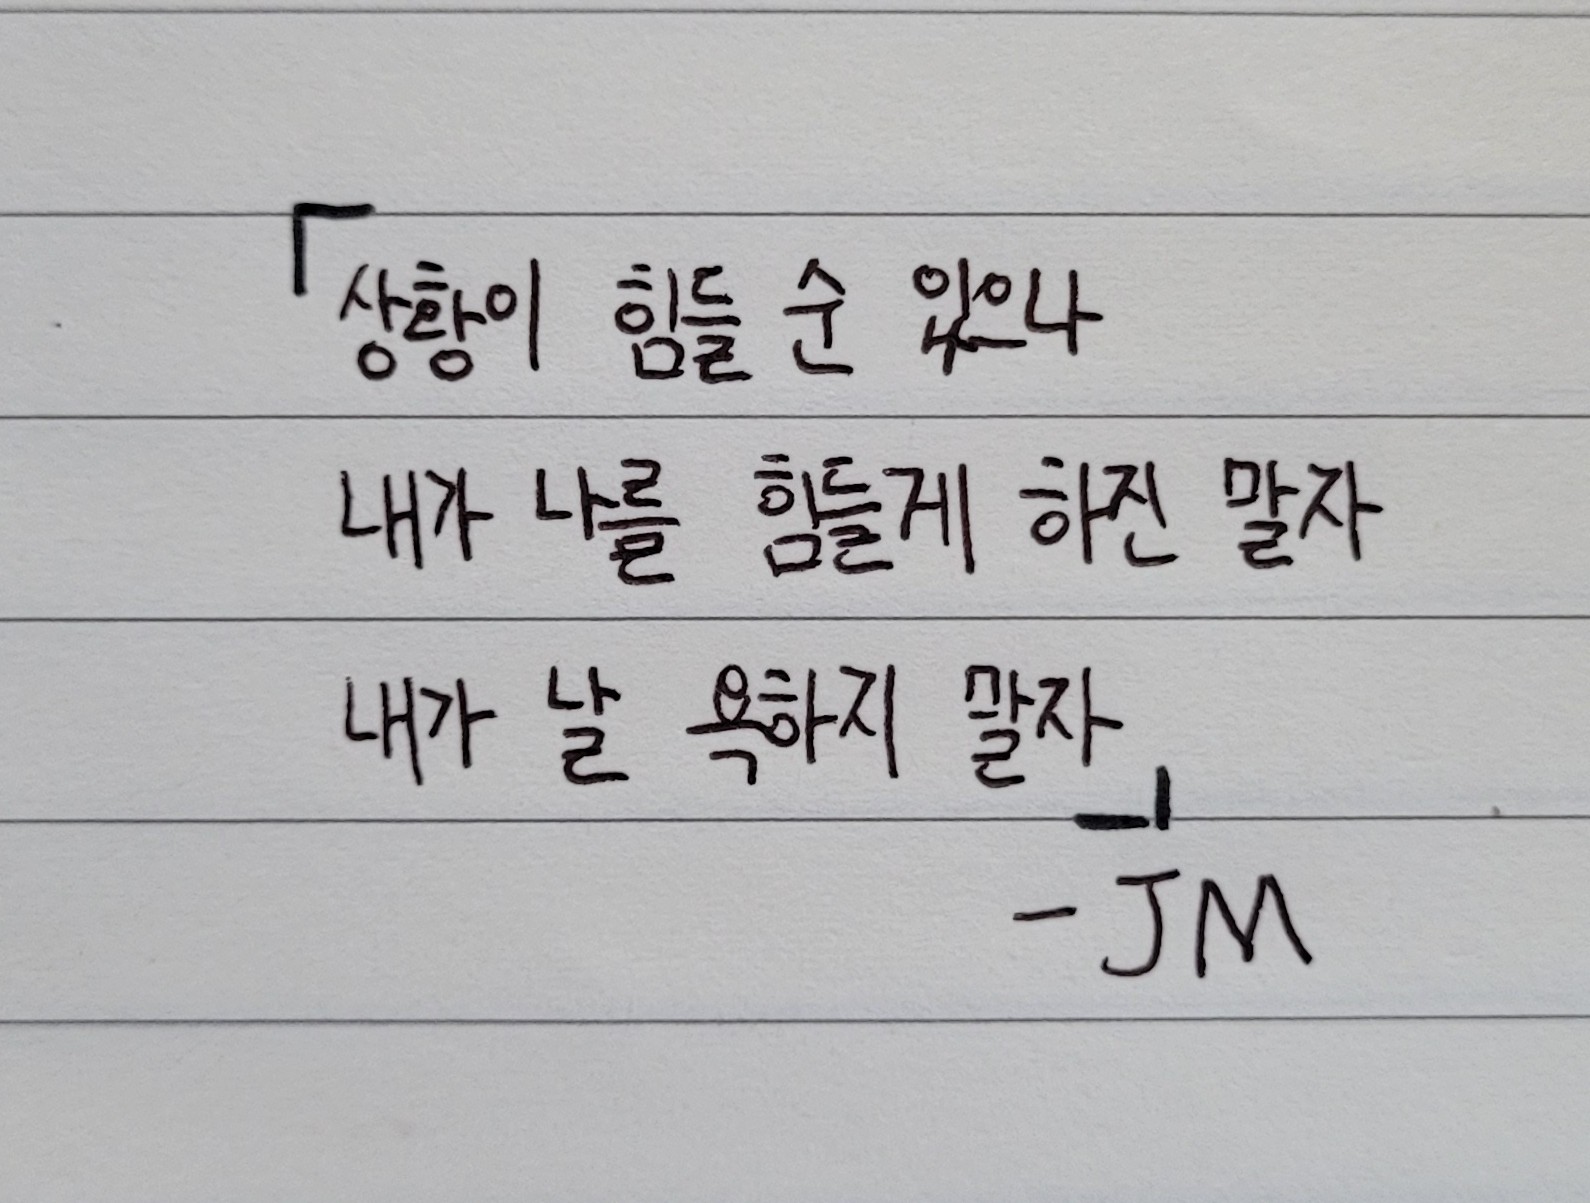 「상황이 힘들 순 있으나
내가 나를 힘들게 하진 말자
내가 날 욕하지 말자」
-JM